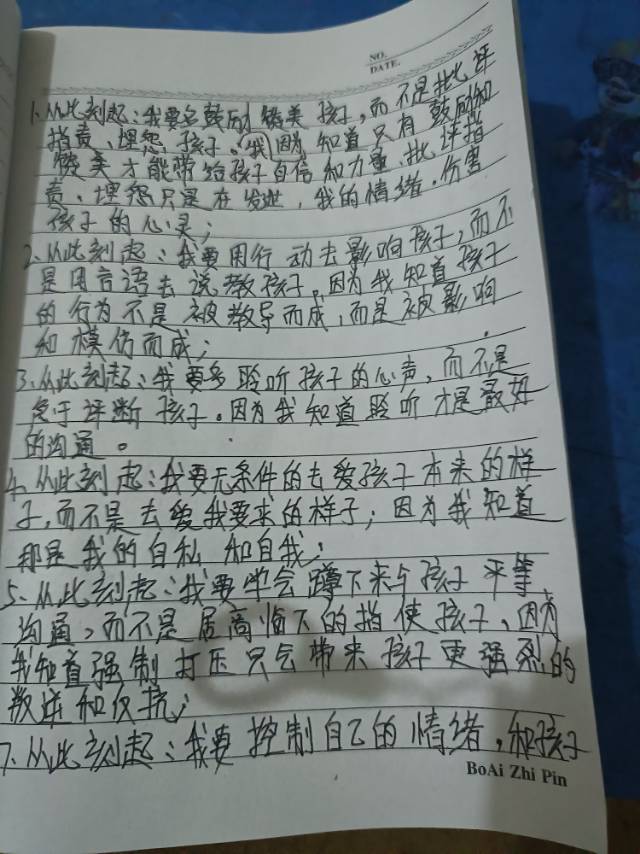 NO.
DATE.
1、从此刻起:我要多鼓励赞美孩子,而不是批评
指责、埋怨孩子。我因为知道只有鼓励和
赞美才能带给孩子自信和力量、批评指
责、埋怨只是在发泄,我的情绪.伤害
孩子的心灵;
2、从此刻起:我要用行动去影响孩子,而不
是用言语去说教孩子。因为我知道孩子
的行为不是被教导而成,而是被影响
和模仿而成;
3、从此刻起:我要多聆听孩子的心声,而不是
急于评断孩子。因为我知道聆听才是最好
的沟通。
4、从此刻起:我要无条件的去爱孩子本来的样
子,而不是去爱我要求的样子;因为我知道
那是我的自私和自我;
5、从此刻起:我要学会蹲下来与孩子平等
沟通,而不是居高临下的指使孩子,因为
我知道强制打压只会带来孩子更强烈的
叛逆和反抗;
7、从此刻起:我要控制自己的情绪,和孩子
BoAi Zhi Pin